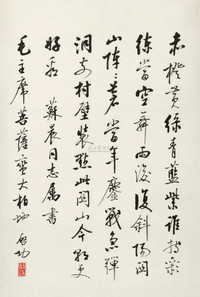 赤橙黄绿青蓝紫谁持彩
练当空舞雨后复斜阳关
山阵々苍当年鏖战急弹
洞前村壁装点此关山今朝更
好看 苏辰同志属书
毛主席菩萨蛮大柏地 启功